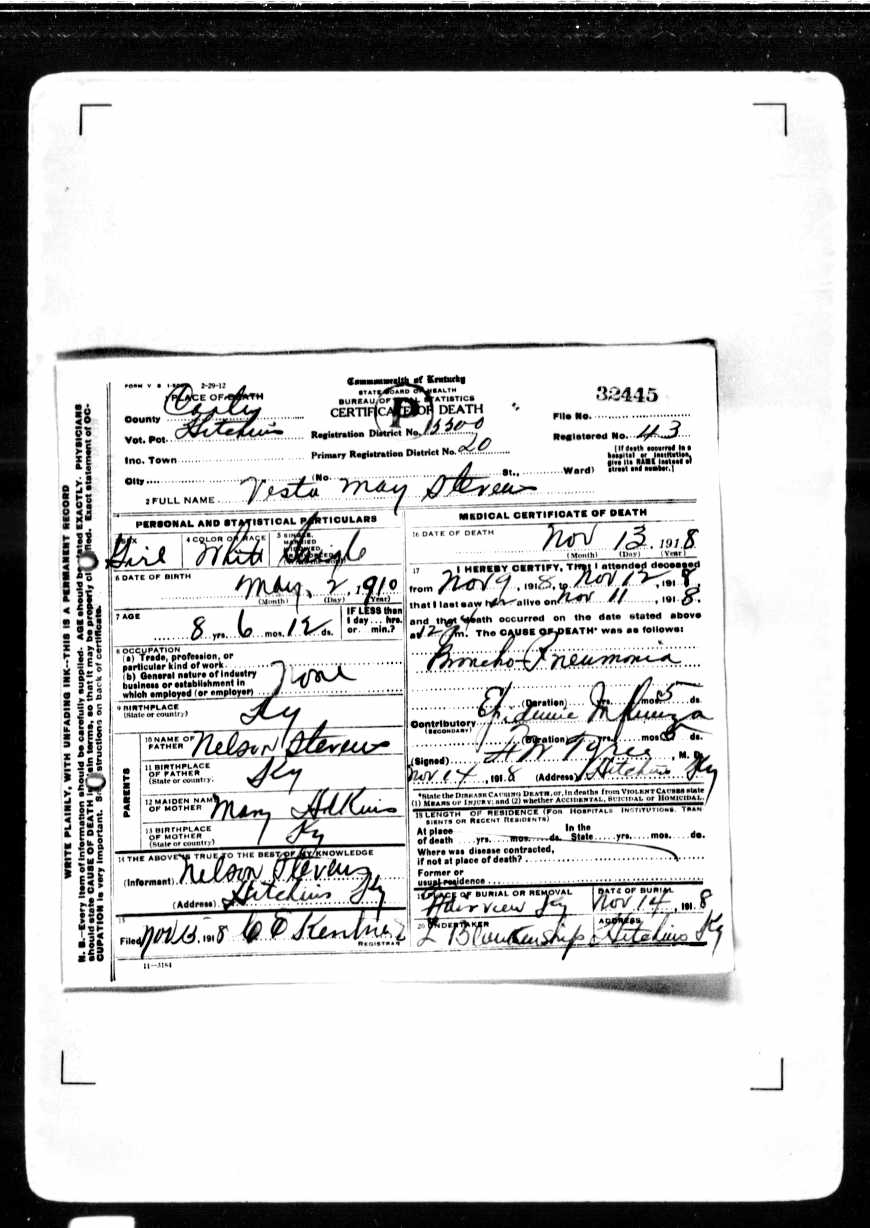 FORM V S 1-50M 2-29-12
Commonwealth of Kentucky
STATE BOARD OF HEALTH
BUREAU OF VITAL STATISTICS
CERTIFICATE OF DEATH
P
1 PLACE OF DEATH
County Carter
Vot. Pct. Hitchins
Inc. Town
City (No. St., Ward)
Registration District No. 15500
Primary Registration District No. 20
32445
File No.
Registered No. 43
[If death occurred in a
hospital or institution,
give its NAME instead of
street and number.]
2 FULL NAME Vesta May Stevens
PERSONAL AND STATISTICAL PARTICULARS
3 SEX Girl
4 COLOR OR RACE White
5 SINGLE, MARRIED WIDOWED, Single
6 DATE OF BIRTH May, 2, 1910
(Month) (Day) (Year)
7 AGE 8 yrs. 6 mos. 12 ds.
IF LESS than
1 day... hrs.
or min.?
8 OCCUPATION
(a) Trade, profession, or
particular kind of work
(b) General nature of industry
business or establishment in
which employed (or employer) None
9 BIRTHPLACE
(State or country) Ky
PARENTS
10 NAME OF
FATHER Nelson Stevens
11 BIRTHPLACE
OF FATHER
(State or country) Ky
12 MAIDEN NAME
OF MOTHER Mary Adkins
13 BIRTHPLACE
OF MOTHER
(State or country) Ky
14 THE ABOVE IS TRUE TO THE BEST OF MY KNOWLEDGE
(Informant) Nelson Stevens
(Address) Hitchins Ky
15
Filed Nov 15, 1918 C E Kentner
REGISTRAR
11—3184
MEDICAL CERTIFICATE OF DEATH
16 DATE OF DEATH Nov 13, 1918
(Month) (Day) (Year)
17 I HEREBY CERTIFY, That I attended deceased
from Nov 9, 1918, to Nov 12, 1918,
that I last saw her alive on Nov 11, 1918.
and that death occurred on the date stated above
at 12 m. The CAUSE OF DEATH* was as follows:
Broncho-Pneumonia
(Duration) yrs. mos. 5 ds.
Contributory Epidemic Influenza
(SECONDARY)
(Duration) yrs. mos. 8 ds.
(Signed) H W Tyree, M. D.
Nov 14, 1918 (Address) Hitchins Ky
*State the DISEASE CAUSING DEATH, or, in deaths from VIOLENT CAUSES state
(1) MEANS OF INJURY; and (2) whether ACCIDENTAL, SUICIDAL or HOMICIDAL.
18 LENGTH OF RESIDENCE (FOR HOSPITALS INSTITUTIONS, TRAN
SIENTS OR RECENT RESIDENTS)
At place In the
of death yrs. mos. ds. State yrs. mos. ds.
Where was disease contracted,
if not at place of death?
Former or
usual residence
19 PLACE OF BURIAL OR REMOVAL Fairview Ky
DATE OF BURIAL Nov 14, 1918
20 UNDERTAKER L Blankenship
ADDRESS Hitchins Ky
WRITE PLAINLY, WITH UNFADING INK—THIS IS A PERMANENT RECORD
N. B.—Every item of information should be carefully supplied. AGE should be stated EXACTLY. PHYSICIANS
should state CAUSE OF DEATH in plain terms, so that it may be properly classified. Exact statement of OC-
CUPATION is very important. See instructions on back of certificate.